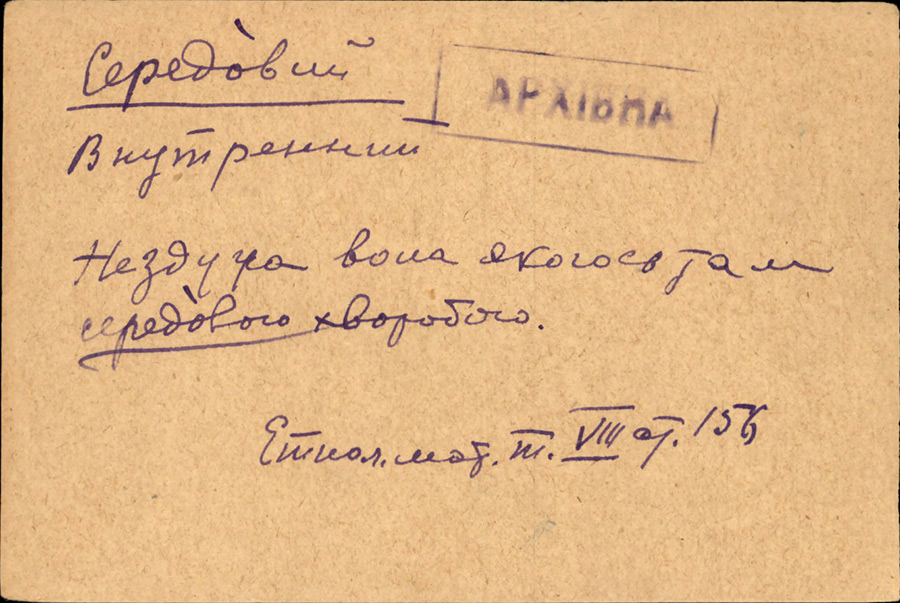 Середо́вий
АРХІВНА
Внутренний
Нездужа вона якогось там
середо́вого хворобого.
Етнол. мат. т. VIII ст. 156